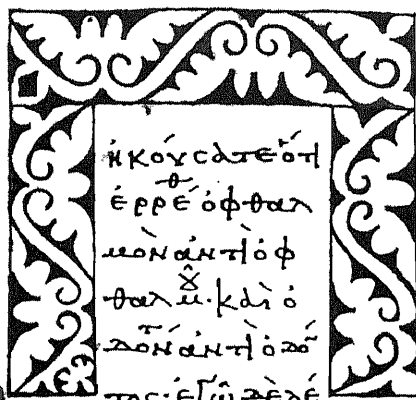 ἠκούσατε ὅτι
ἐρρέθ ὀφθαλ
μὸν ἀντὶ ὀφ
θαλμ. καὶ ὀ
δόντ ἀντὶ ὀδό
τος· ἐγὼ δὲ λέ